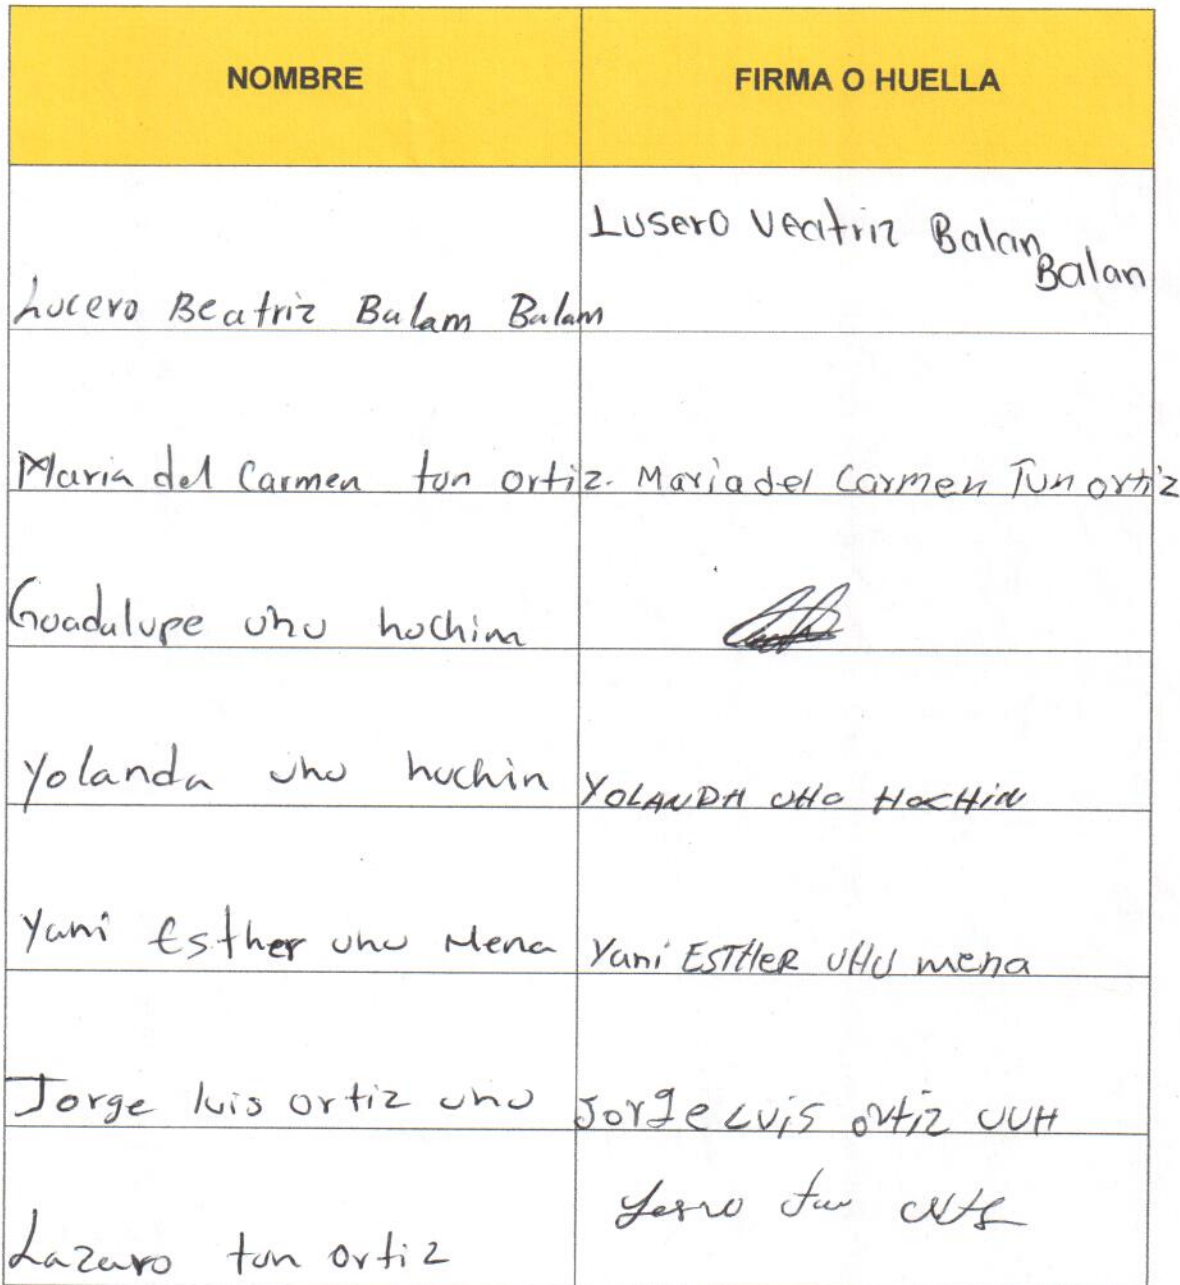 NOMBRE FIRMA O HUELLA
Lusero Veatriz Balan
Balan
Lucero Beatriz Balam Balam
Maria del Carmen tun ortiz. Maria del Carmen Tun ortiz
Guadalupe uhu huchim
Yolanda uhu huchin YOLANDA UHU HUCHIN
Yami Esther uhu Mena Yani ESTHER UHU mena
Jorge luis ortiz uhu Jorge Luis ortiz UUH
Lazaro tun ortiz